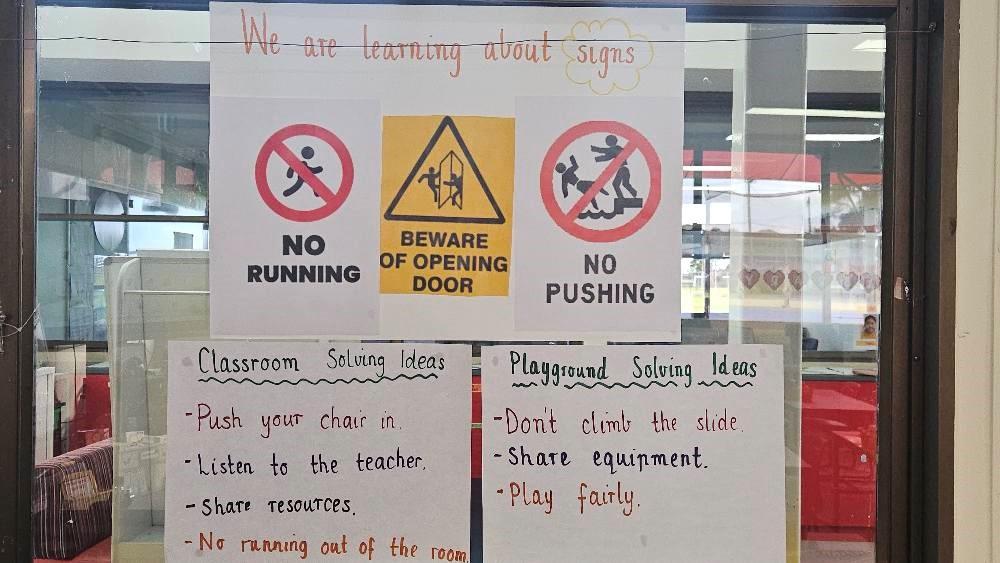 We are learning about signs
NO
RUNNING
BEWARE
OF OPENING
DOOR
NO
PUSHING
Classroom Solving Ideas
-Push your chair in.
-Listen to the teacher.
-Share resources.
-No running out of the room
Playground Solving Ideas
-Don't climb the slide.
-Share equipment.
-Play fairly.